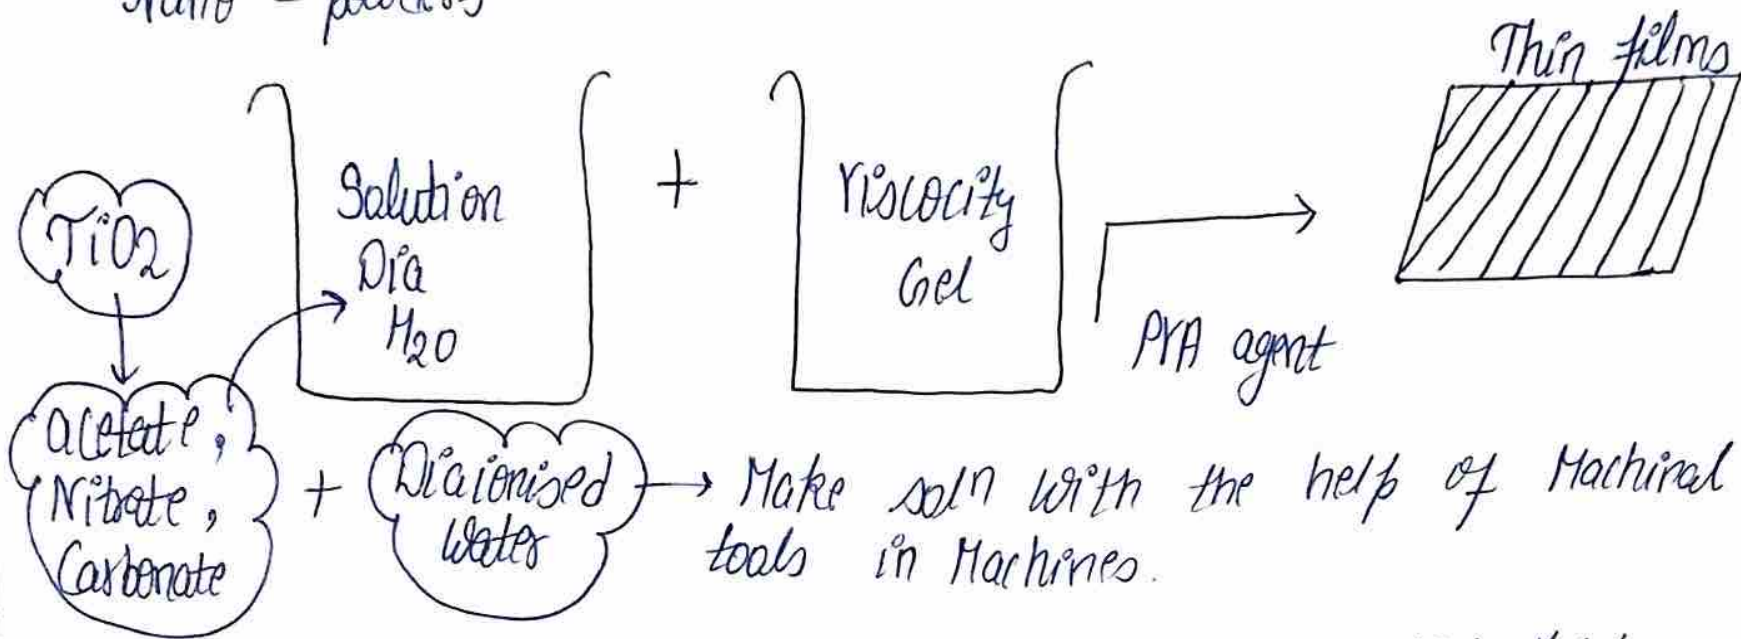 Thin films
TiO2
Solution
Dia
H2O
+
Viscocity
Gel
PVA agent
acetate,
Nitrate,
Carbonate
+
Diaionised
Water
Make soln with the help of Machinal
tools in Machines.